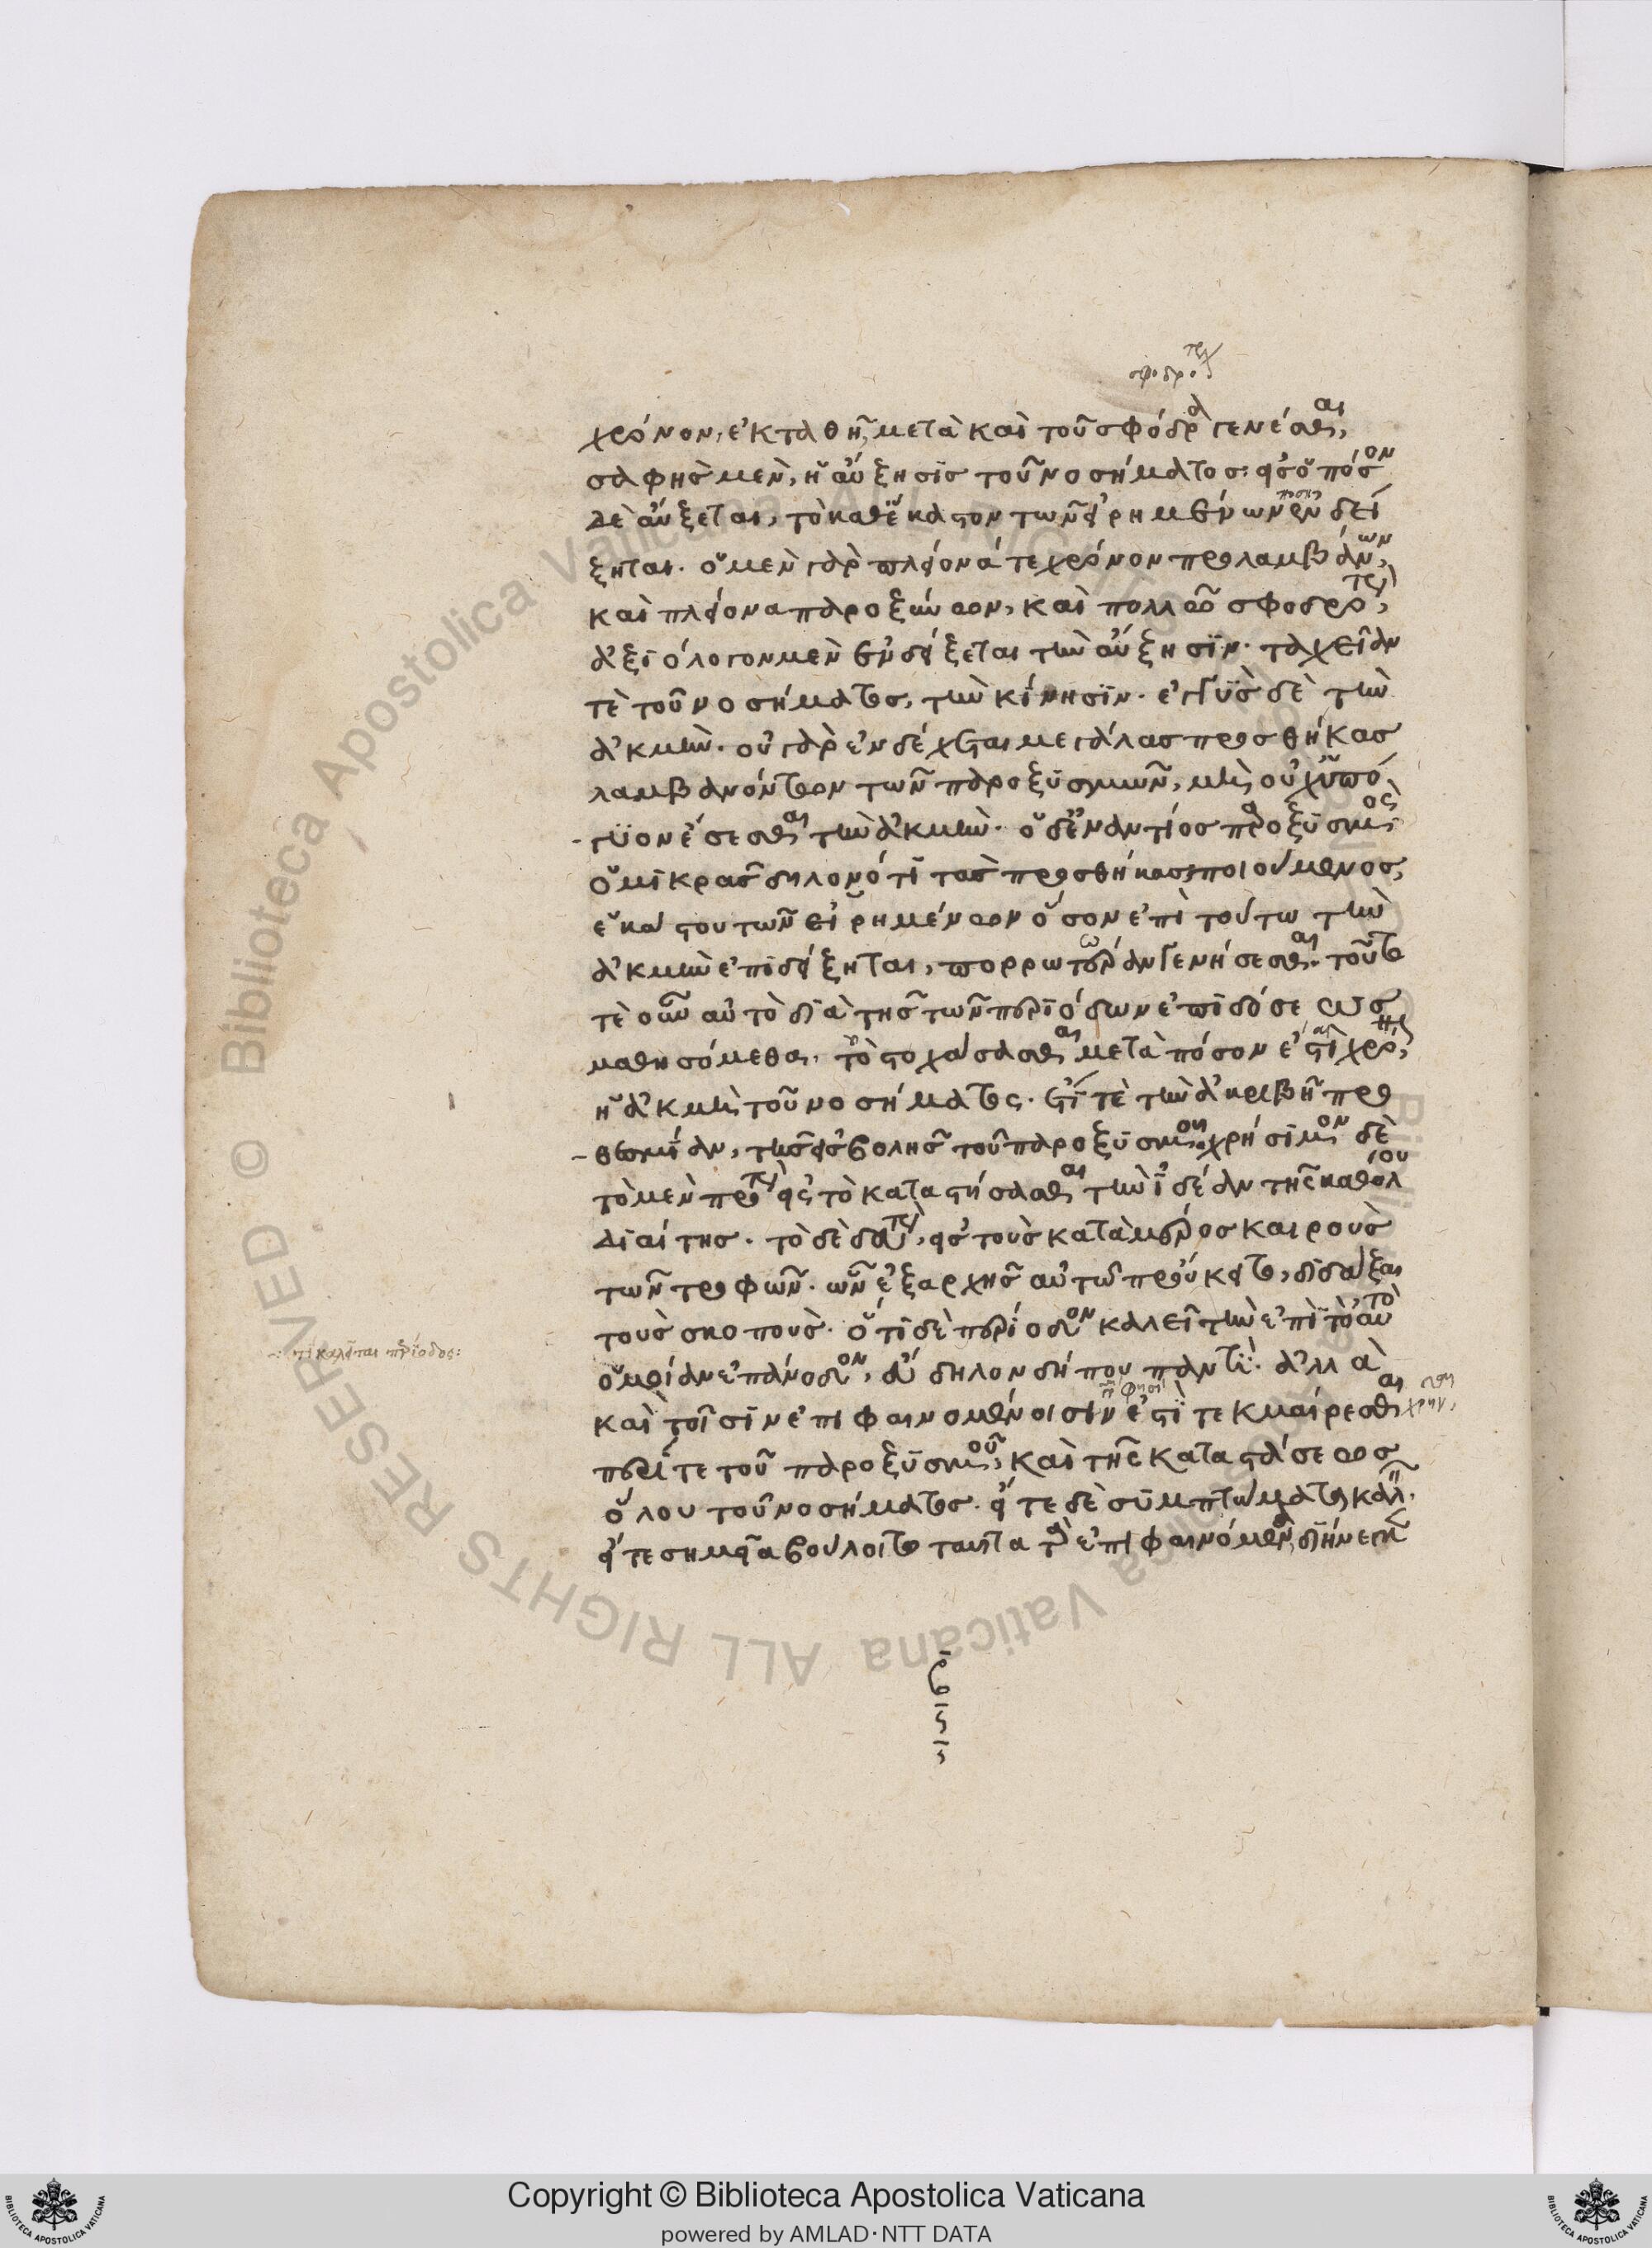 σφοδρότερ
χρόνον, ἐκταθῆ, μετὰ καὶ τοῦ σφόδρα γενέσθαι,
σαφὴς μὲν, ἡ αὔξησις τοῦ νοσήματος· εἰς ὁπόσον
δὲ αὔξεται, τὸ καθ' ἕκαστον τῶν εἰρημένων ποσὸν δεί
ξηται. ὁ μὲν γὰρ πλείονά τε χρόνον προλαμβάνων,
καὶ πλείονα παροξύνων, καὶ πολλῶ σφοδρότερ,
ἀξιόλογον μὲν ἐνδείξεται τὴν αὔξησιν. ταχεῖαν
τὲ τοῦ νοσήματος, τὴν κίνησιν. ἐγγὺς δὲ τὴν
ἀκμὴν. οὐ γὰρ ἐνδέχεται μεγάλας προσθήκας
λαμβανόντων τῶν παροξυσμῶν, μὴ οὐχ ὑπό
γυον ἔσεσθαι τὴν ἀκμὴν. ὁ δ' ἐναντίος παροξυσμὸς
ὁ μικρὰς δηλονότι τὰς προσθήκας ποιούμενος,
ἑκάστου τῶν εἰρημένων ὅσον ἐπὶ τούτω τὴν
ἀκμὴν ἐπιδείξηται, πορρωτέρω ἂν γενήσεσθαι. τοῦτό
τὲ οὖν αὐτὸ διὰ τῆς τῶν περιόδων ἐπιδόσεως
μαθησόμεθα, τὸ στοχάσασθαι μετὰ πόσον ἔσται χρό
ἡ ἀκμὴ τοῦ νοσήματος. ἔτι τὲ τὴν ἀκριβῆ προ
θεσμίαν, τῆς εἰσβολῆς τοῦ παροξυσμοῦ. χρήσιμον δὲ
τὸ μὲν πρότερον εἰς τὸ καταστήσασθαι τὴν ἰδέαν τῆς καθόλου
διαίτης. τὸ δὲ δεύτερον, εἰς τοὺς κατὰ μέρος καιροὺς
τῶν τροφῶν. ὧν ἐξ ἀρχῆς αὐτῶ προύκειτο, διδάξαι
τοὺς σκοπούς. ὅτι δὲ περίοδον καλεῖ τὴν ἐπὶ τὸ αὐτὸ
ὁμοίαν ἐπάνοδον, εὔδηλον δήπου παντί. ἀλλὰ
καὶ τοῖσιν ἐπιφαινομένοισίν φησι ἐστὶ τεκμαίρεσθαι χρην,
περί τε τοῦ παροξυσμοῦ, καὶ τῆς καταστάσεως
ὅλου τοῦ νοσήματος. εἴτε δὲ συμπτώματα καλεῖν.
εἴτε σημεῖα βούλοιτο ταῦτα τὰ ἐπιφαινόμενα, διήνεγκ
τί καλεῖται περίοδος: